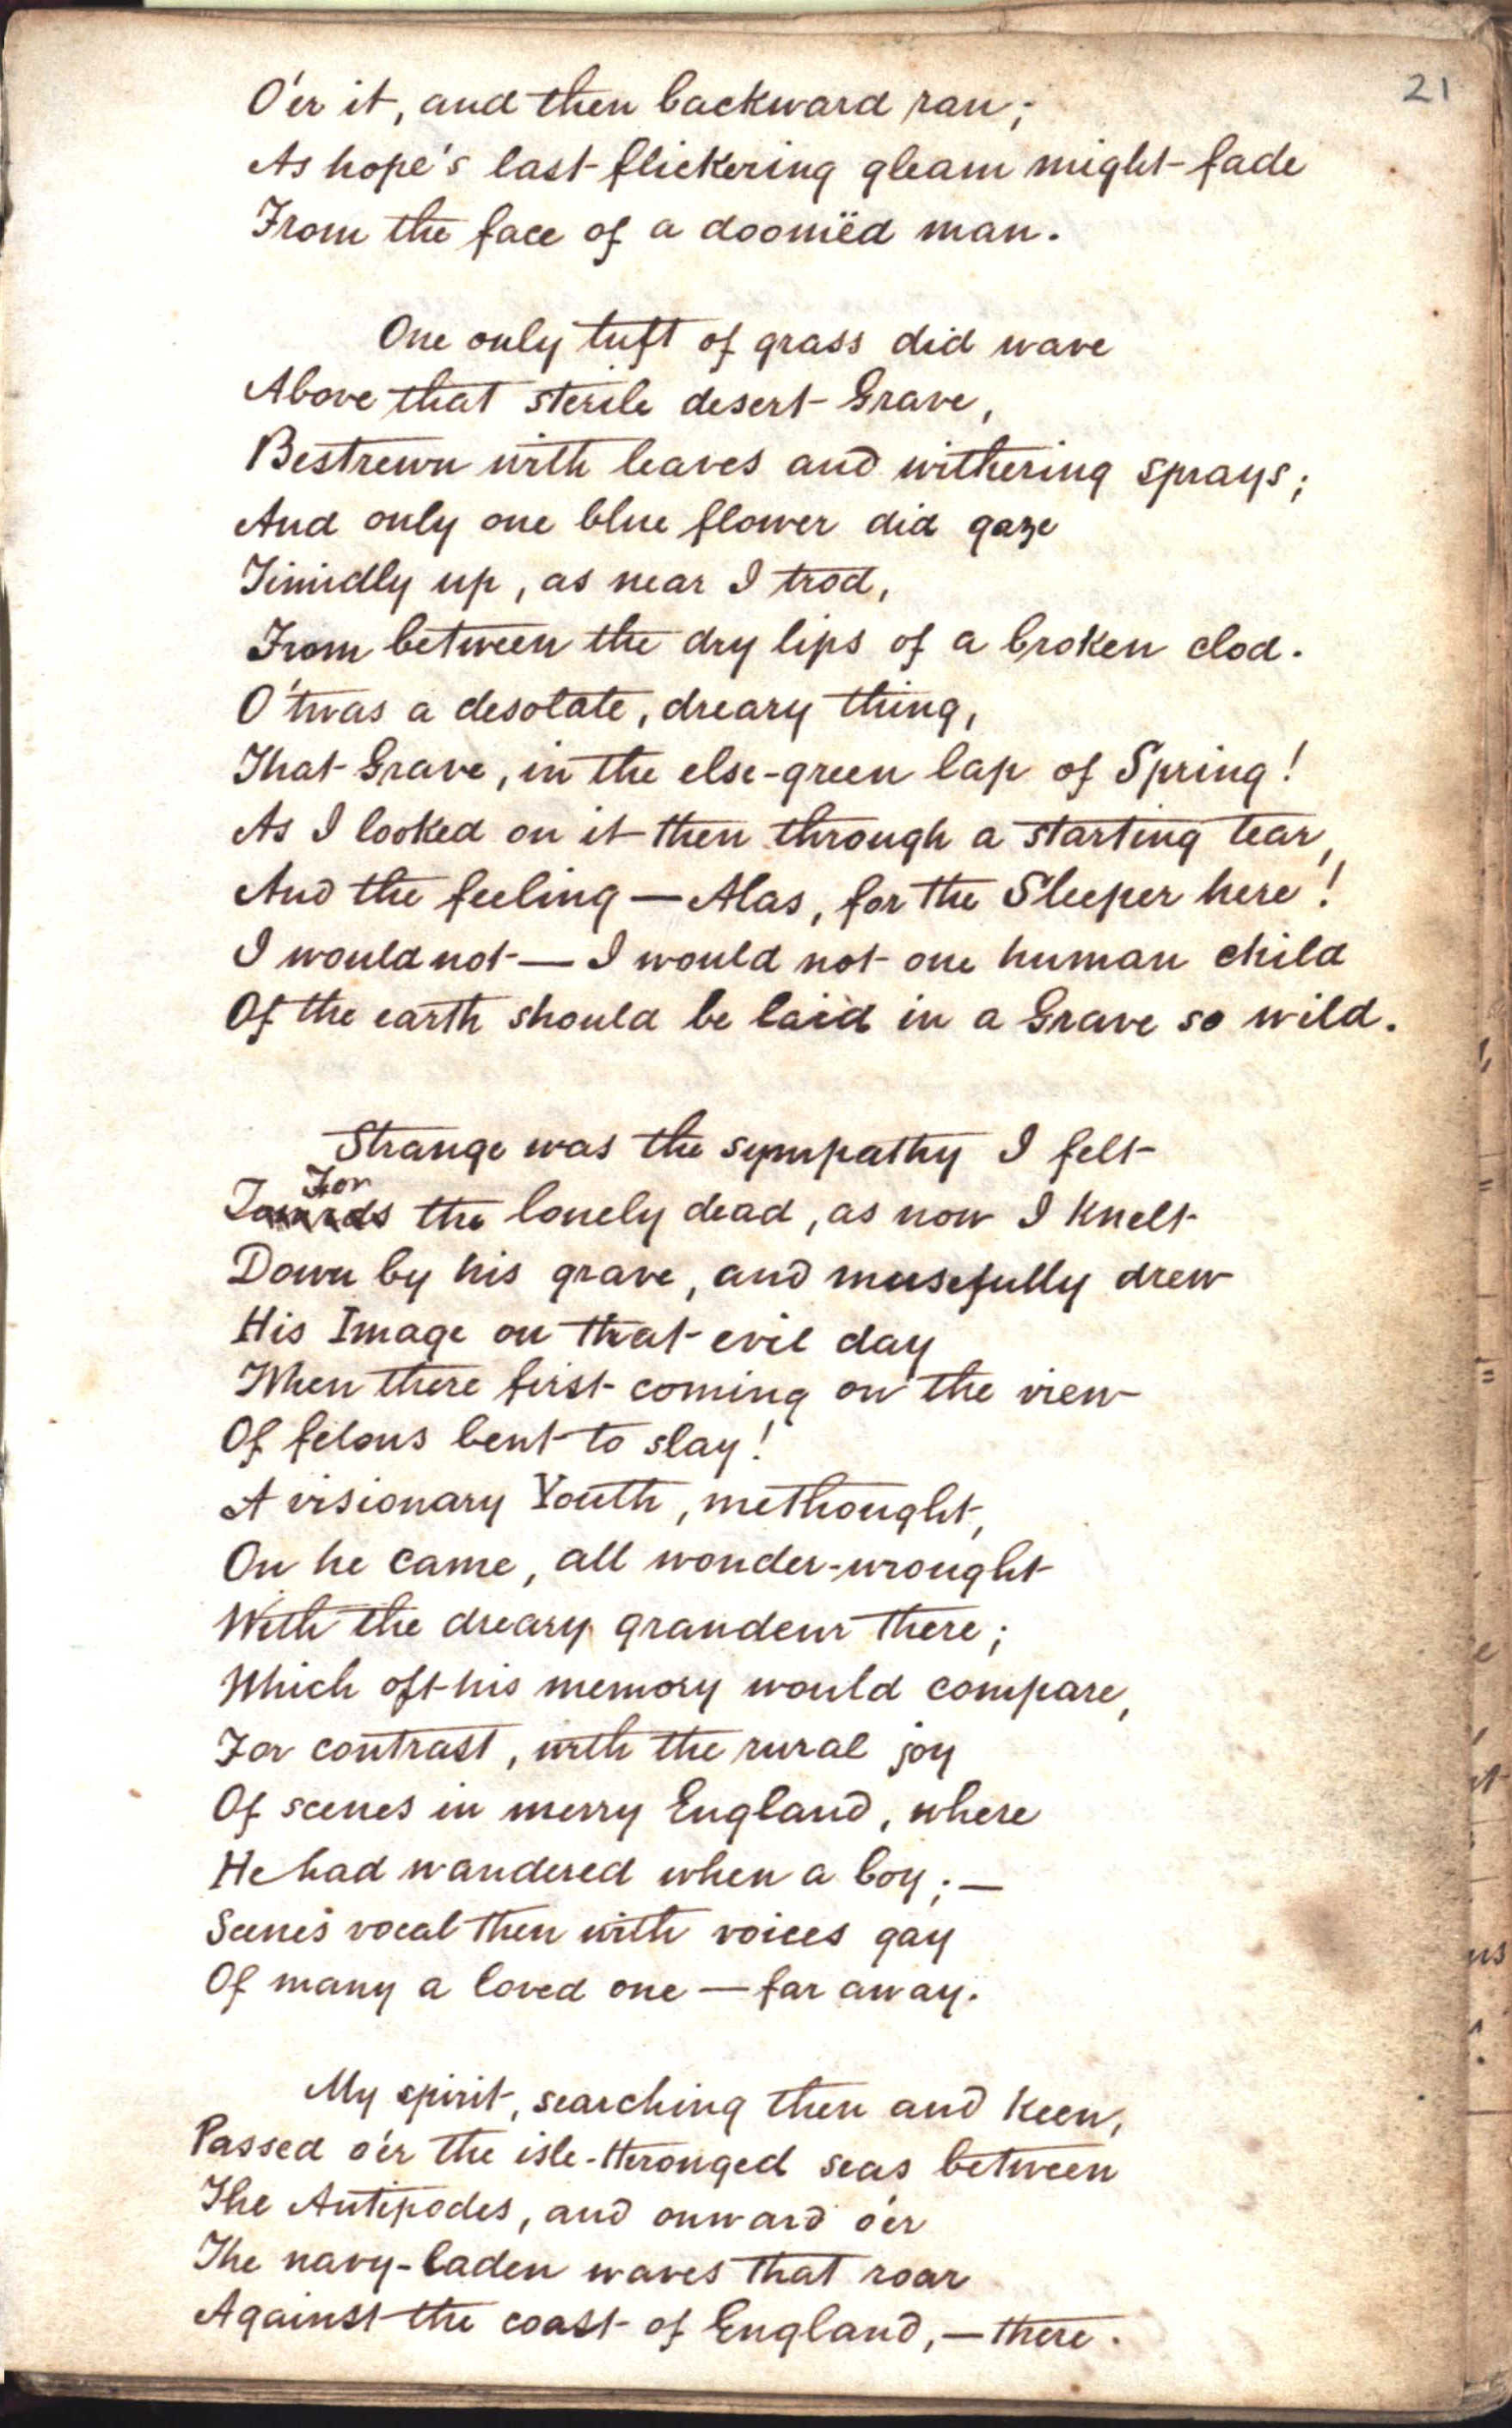 21
O'er it, and then backward ran;
As hope's last flickering gleam might fade
From the face of a doomëd man.
One only tuft of grass did wave
Above that sterile desert Grave,
Bestrewn with leaves and withering sprays;
And only one blue flower did gaze
Timidly up, as near I trod,
From between the dry lips of a broken clod.
O 'twas a desolate, dreary thing,
That Grave, in the else-green lap of Spring!
As I looked on it then through a starting tear,
And the feeling — Alas, for the Sleeper here!
I would not — I would not one human child
Of the earth should be laid in a Grave so wild.
Strange was the sympathy I felt
For
Towards the lonely dead, as now I knelt
Down by his grave, and musefully drew
His Image on that evil day
When there first coming on the view
Of felons bent to slay!
A visionary Youth, methought,
On he came, all wonder-wrought
With the dreary grandeur there;
Which oft his memory would compare,
For contrast, with the rural joy
Of scenes in merry England, where
He had wandered when a boy; —
Scenes vocal then with voices gay
Of many a loved one — far away.
My spirit, searching then and keen,
Passed o'er the isle-thronged seas between
The Antipodes, and onward o'er
The navy-laden waves that roar
Against the coast of England, — there.